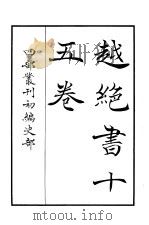 越絕書十
五卷
四部叢刊初編史部
mtoou.info